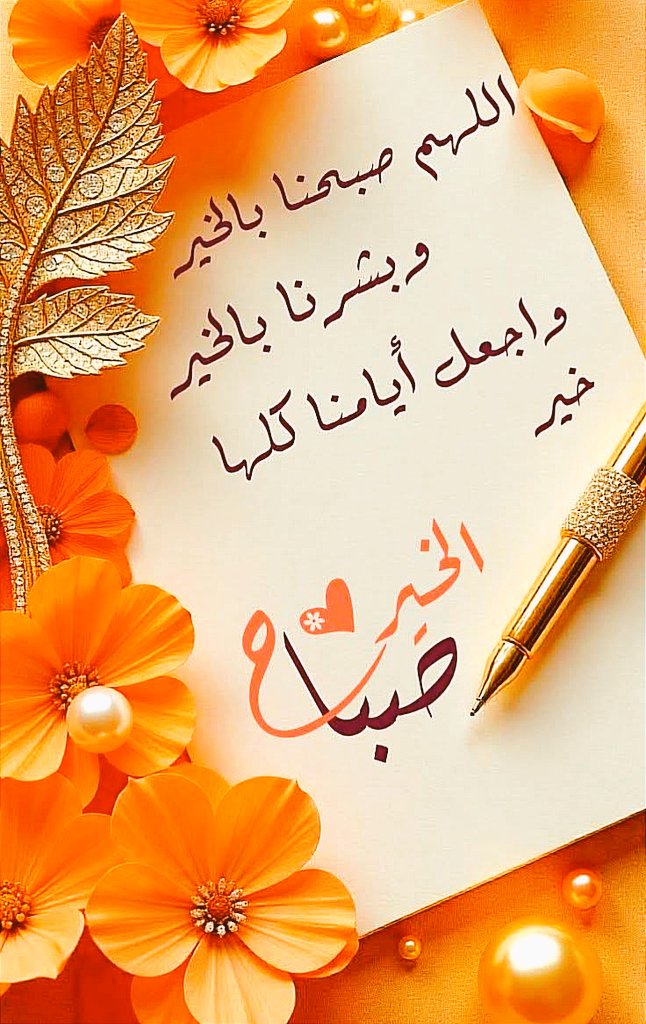 اللهم صبحنا بالخير
وبشرنا بالخير
واجعل أيامنا كلها
خير
صباح الخير